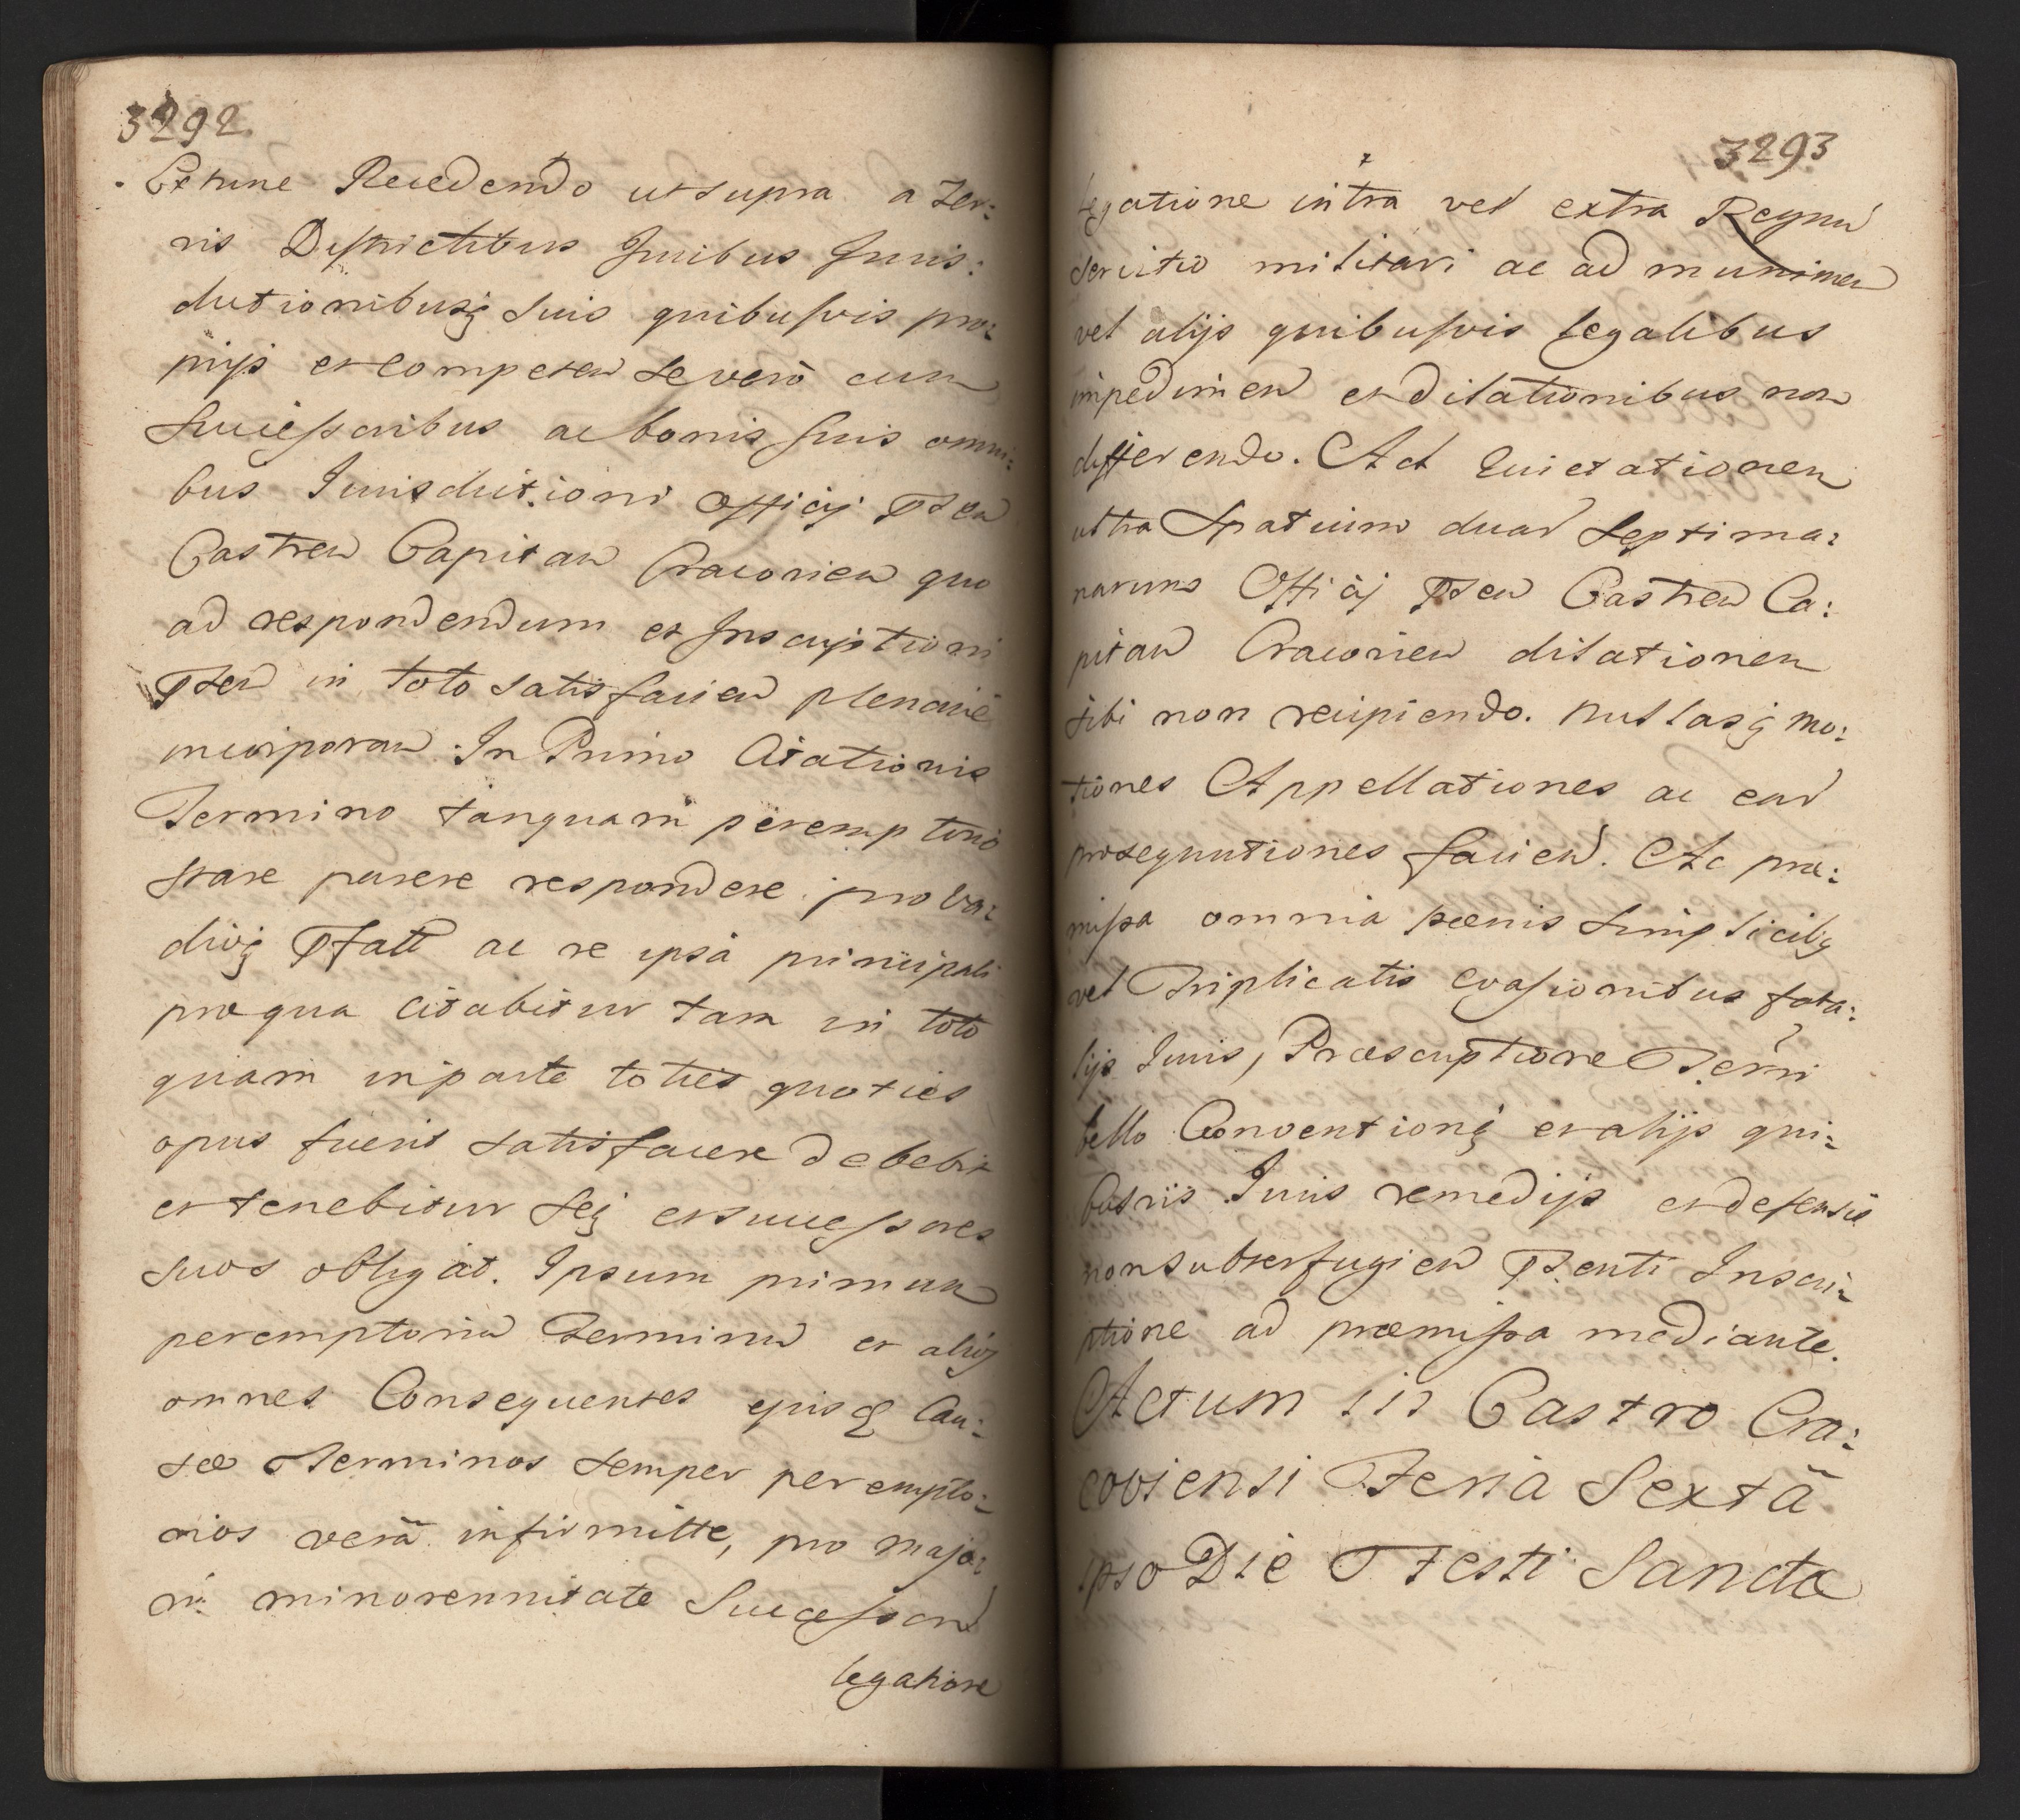 3292.
Extunc Recedendo ut supra a Ter:
ris Districtibus Juribus Juris:
dictionibusq suis quibusvis pro:
prijs et competen se verò cum
Successoribus ac bonis suis omni:
bus Jurisdictioni Officij Psen
Castren Capitan Cracovien quo
ad respondendum et Inscriptioni
Psen in toto satisfacien plenariè
incorporan. In Primo Citationis
Termino tanquam peremptorio
stare parere respondere pro va:
dioq Pfatt ac re ipsà principali
pro qua citabitur tam in toto
quam in parte toties quoties
opus fuerit satisfacere debebit
et tenebitur seq et successores
suos obligat. Ipsum primum
peremptoriu Terminu et alioq
omnes Consequentes ejusq Cau:
sæ Terminos semper perempto:
rios verâ infirmitte, pro majo:
ri minorennitate Successoru
legatione
3293
legatione intra vel extra Regnu
servitio militari ac ad munimen
vel alijs quibusvis legalibus
impedimen et dilationibus non
differendo. Ad Quietationem
ultra Spatium duar Septima:
narum Officij Psen Castren Ca:
pitan Cracovien dilationem
sibi non recipiendo. nullasq mo:
tiones Appellationes ac ear
prosequutiones facien. Ac præ:
missa omnia pœnis simplicibq
vel Triplicatis evasionibus fata:
lijs Juris, Præscriptione Terri
bello Conventionq et alijs qui:
busvis Juris remedijs et defensis
non subterfugien Psenti Inscri:
ptione ad præmissa mediante.
Actum in Castro Cra:
coviensi Feria Sextâ
ipso Die Festi Sanctæ